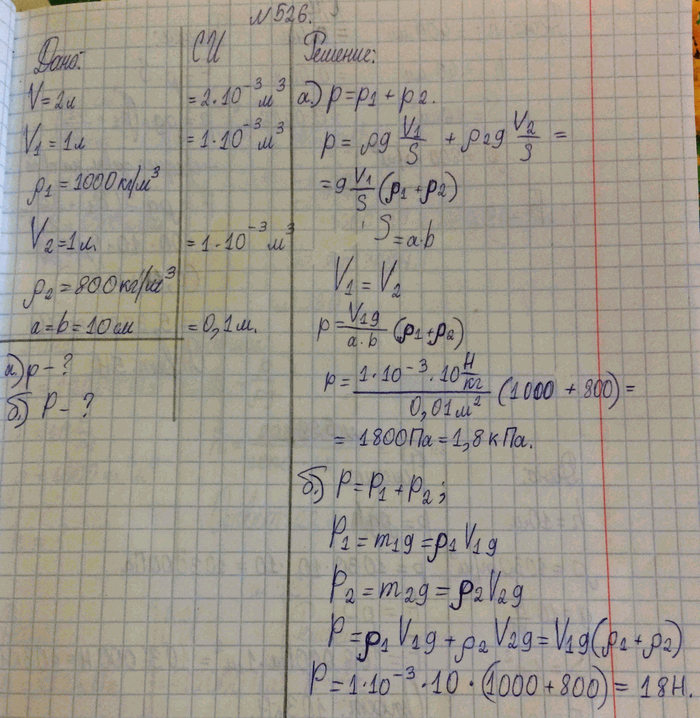 №526.
Дано:
V=2л
V₁=1л
ρ₁=1000кг/м³
V₂=1л
ρ₂=800кг/м³
a=b=10см
а.) p-?
б.) P-?
СИ
=2·10⁻³м³
=1·10⁻³м³
=1·10⁻³м³
=0,1м.
Решение:
а.) p=p₁+p₂.
p=ρg V₁/S + ρ₂g V₂/S =
=g V₁/S (ρ₁+ρ₂)
S=a·b
V₁=V₂
p= V₁g/a·b (ρ₁+ρ₂)
p= 1·10⁻³·10 Н/кг / 0,01м² (1000+800)=
= 1800Па=1,8кПа.
б.) P=P₁+P₂;
P₁=m₁g=ρ₁V₁g
P₂=m₂g=ρ₂V₂g
P=ρ₁V₁g+ρ₂V₂g=V₁g(ρ₁+ρ₂)
P=1·10⁻³·10·(1000+800)=18Н.